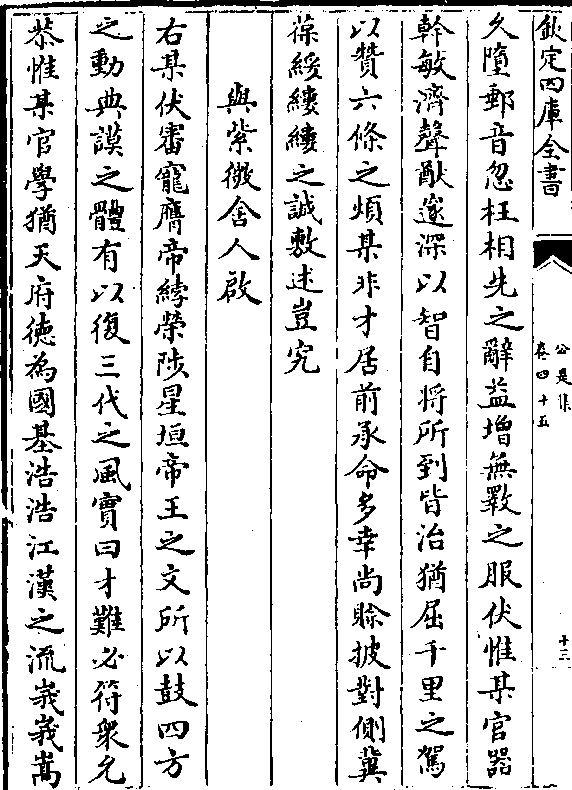 欽定四庫全書
公是集
卷四十五
十三
久墮郵音忽枉相先之辭益增無斁之服伏惟某官器
幹敏濟聲猷邃深以智自將所到皆治猶屈千里之駕
以贊六條之煩某非才居前承命多幸尚賒披對側冀
葆綏縷縷之誠敷述豈究
與紫微舍人啟
右某伏審寵膺帝綍榮陟星垣帝王之文所以鼓四方
之動典謨之體有以復三代之風實曰才難必符衆允
恭惟某官學猶天府德為國基浩浩江漢之流峩峩嵩